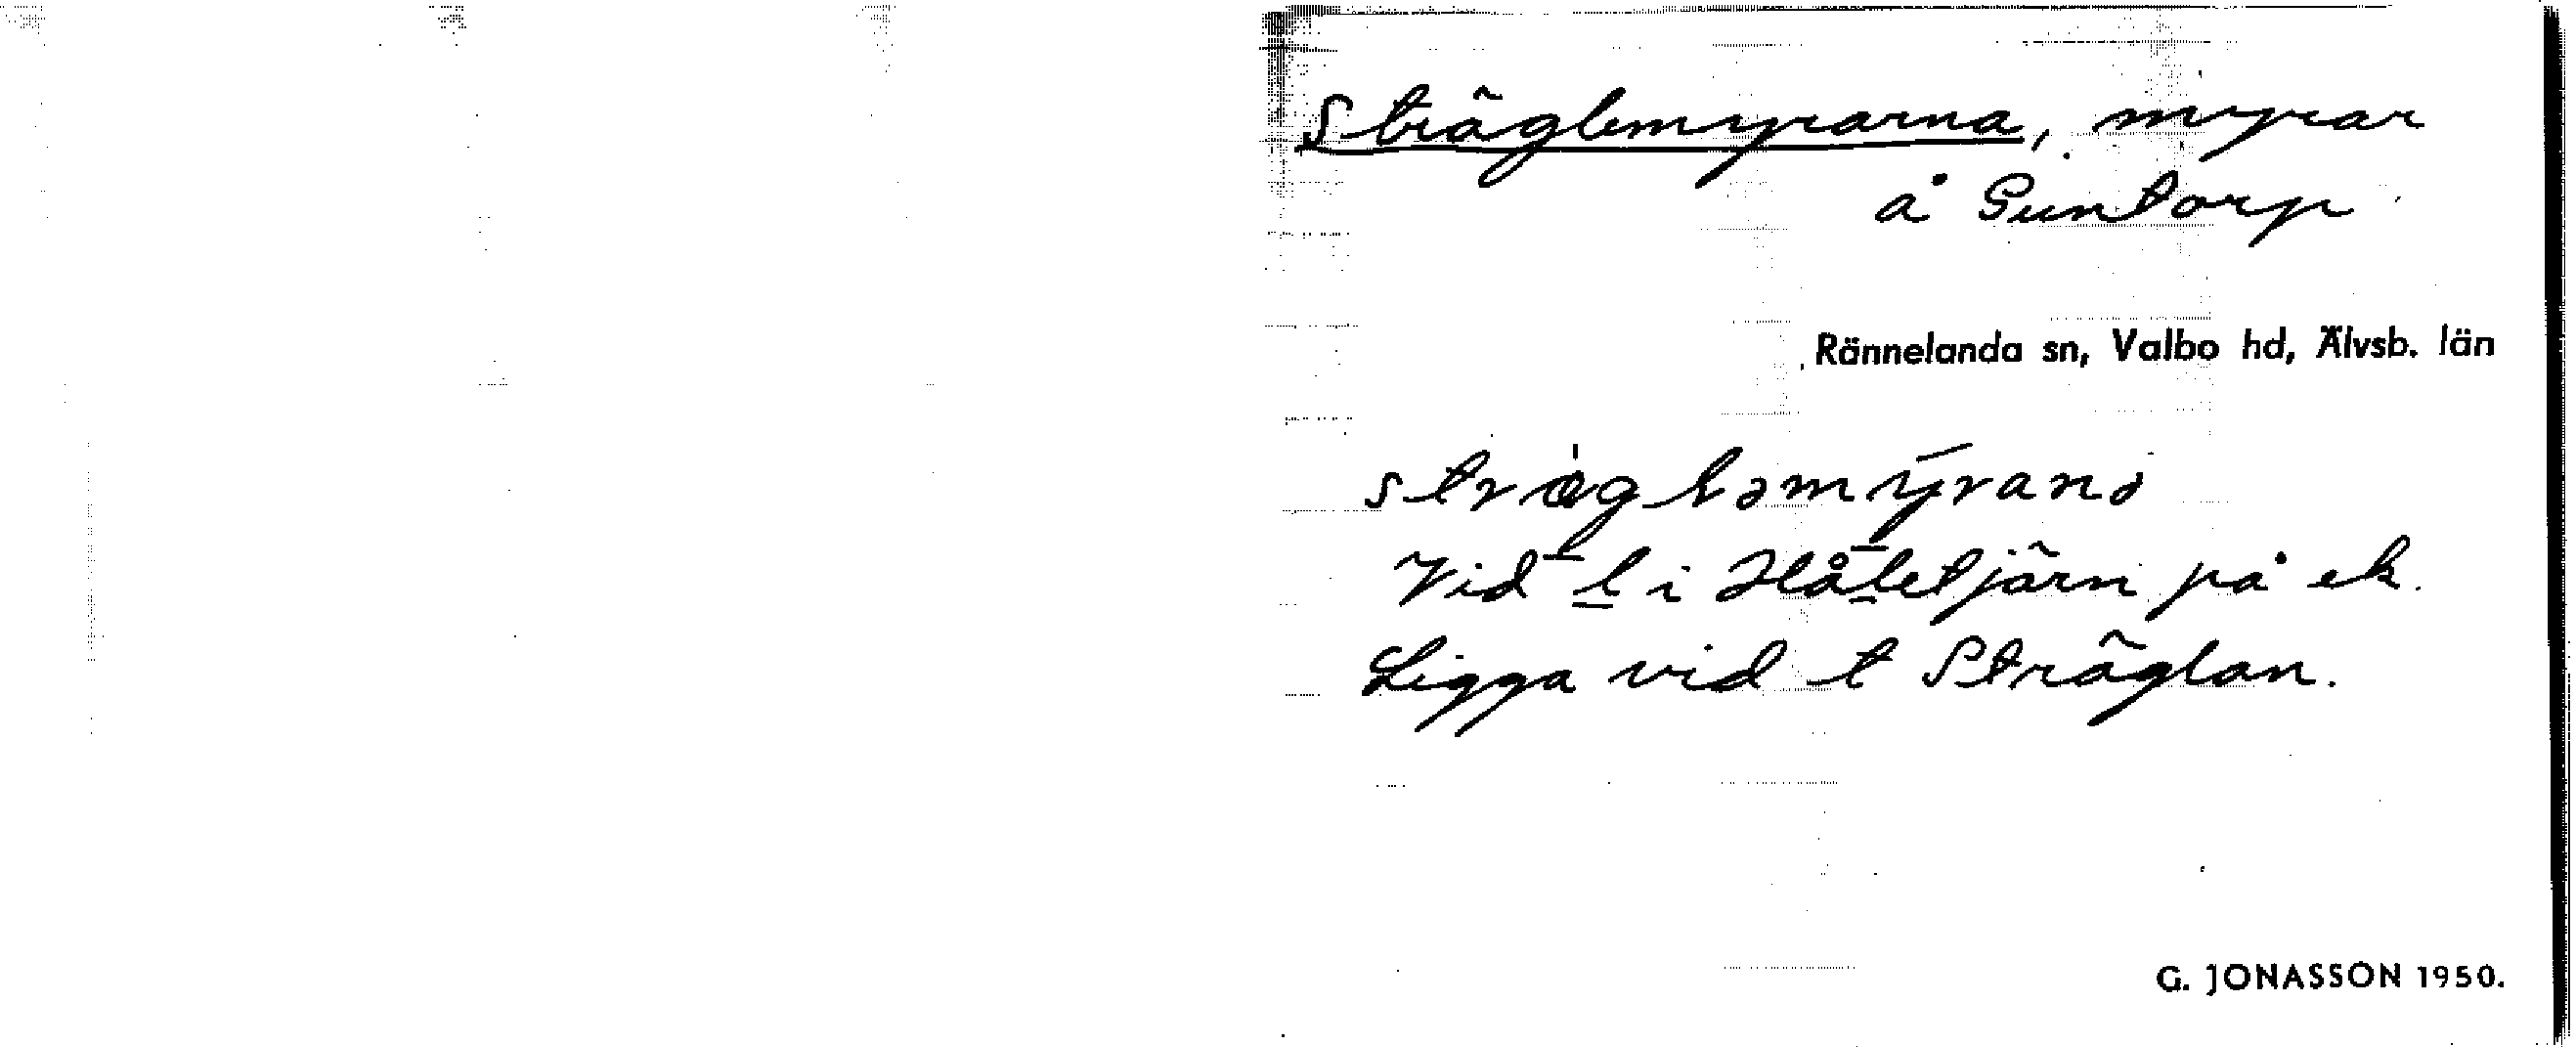 Sträglemyrarna, myrar
å Suntorp
Rännelanda sn, Valbo hd, Älvsb. län
Vid l i Håletjärn på ek.
Ligga vid t Sträglan.
G. JONASSON 1950.